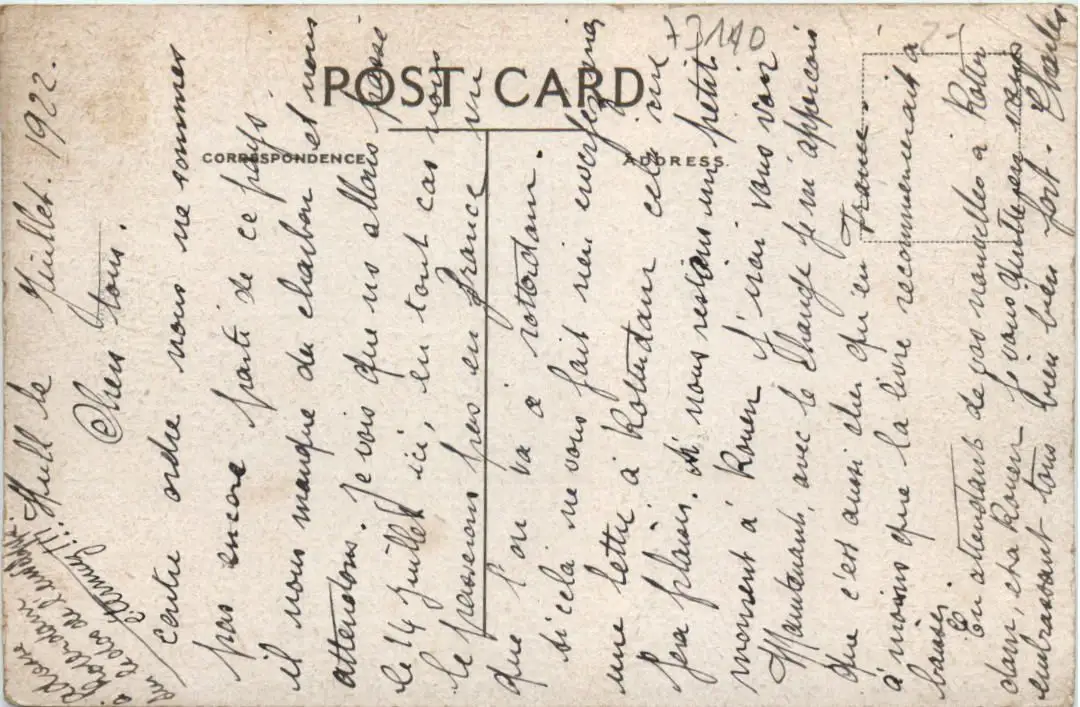 POST CARD
CORRESPONDENCE
ADDRESS.
+3140
2-
Hull le Juillet. 1922.
Chers tous.
Contre ordre nous ne sommes
pas encore parti de ce pays.
il nous manque du charbon et nous
attendons. Je vois que ns allons passé
le 14 Juillet ici, en tout cas nous
le passerons pas en France vu
que l'on va à rotterdam.
si cela ne vous fait rien
une lettre à Rotterdam cela me
fera plaisir. si nous restons un petit
moment à Rouen J'irai vous voir
Maintenant, avec le change Je m'aperçois
que c'est aussi cher qu'en France
à moins que la livre recommencait à
baisser.
En attendant de vos nouvelles à Rotter
dam, et à Rouen Je vous quitte en vous
embrassant tous bien bien fort. Charles
à Rotterdam
sur le dos de